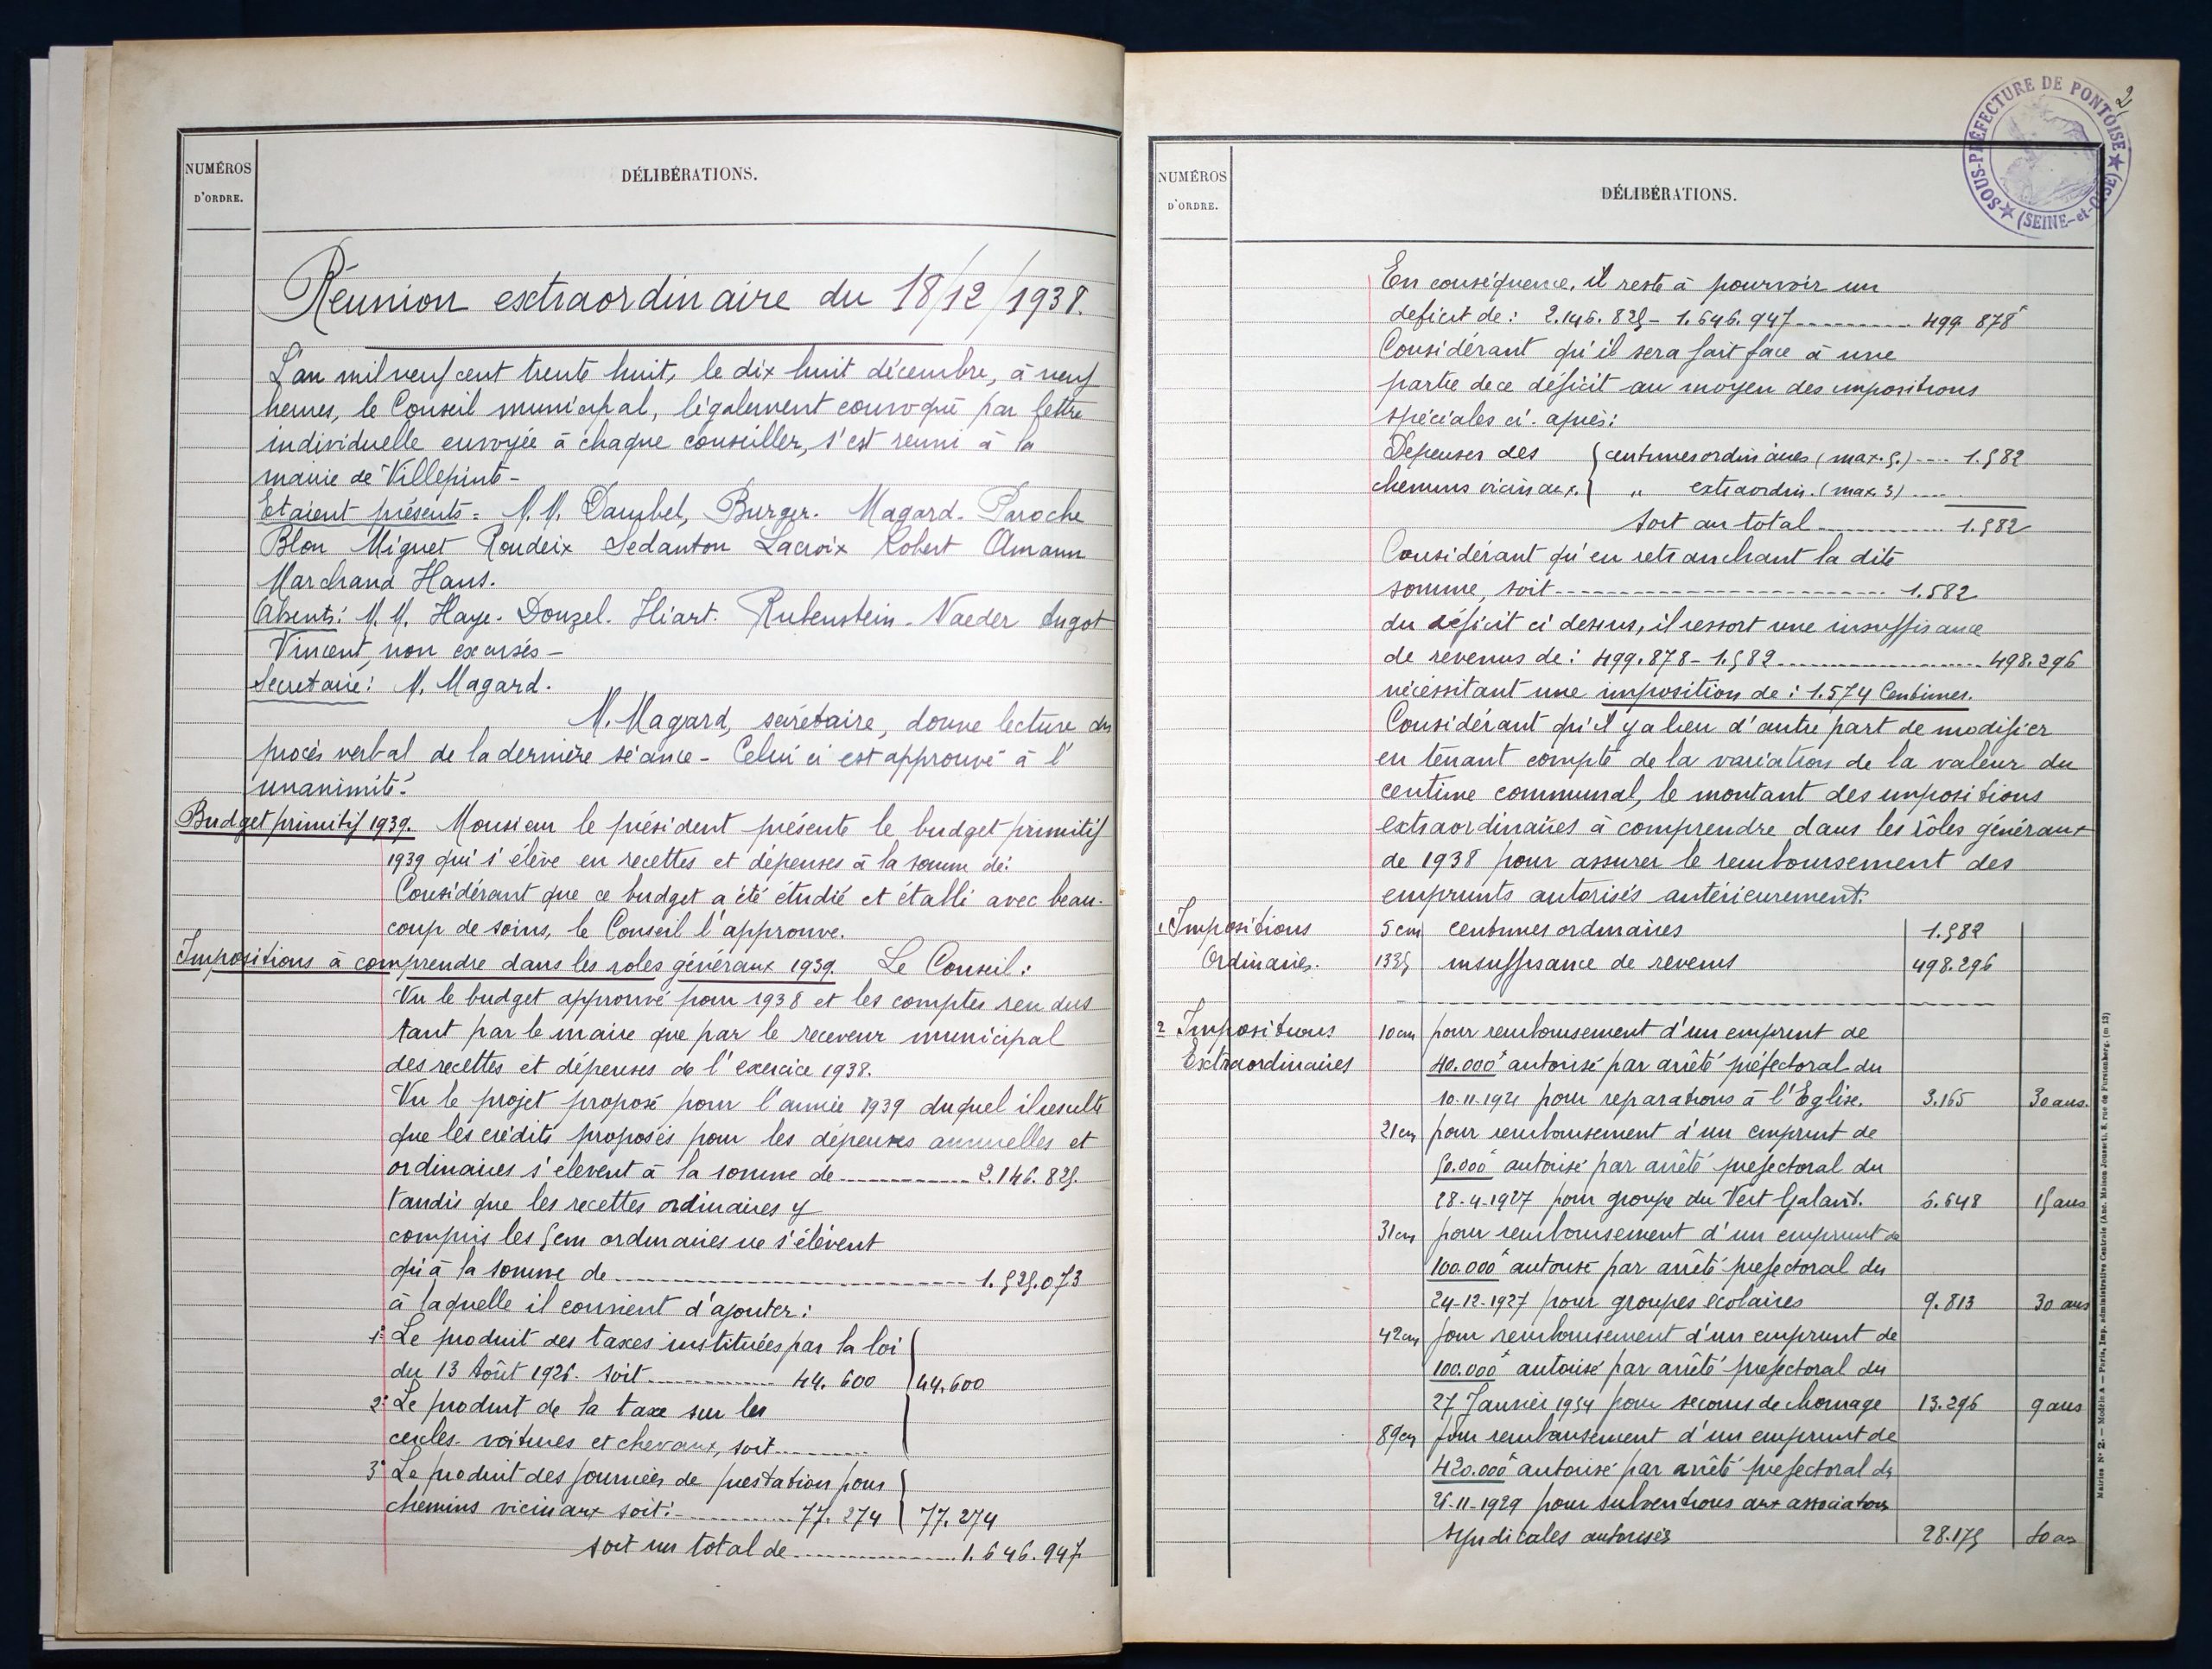 NUMÉROS
D'ORDRE.
DÉLIBÉRATIONS.
Réunion extraordinaire du 18/12/1938.
L'an mil neuf cent trente huit, le dix huit décembre, à neuf
heures, le Conseil municipal, légalement convoqué par lettre
individuelle envoyée à chaque conseiller, s'est réuni à la
mairie de Villepinte -
Etaient présents = M.M. Dambel, Burger. Magard. Paroche
Blon Miguet Roudeix Ledanton Lacroix Robert Amann
Marchand Hans.
Absents: M.M. Haye. Donzel. Hiart. Rubenstein - Naeder Angot
Vincent, non excusés -
Secrétaire: M. Magard.
M. Magard, secrétaire, donne lecture du
procès verbal de la dernière séance - Celui ci est approuvé à l'
unanimité.
Budget primitif 1939. Monsieur le président présente le budget primitif
1939 qui s'élève en recettes et dépenses à la somme de:
Considérant que ce budget a été étudié et établi avec beau-
coup de soins, le Conseil l'approuve.
Impositions à comprendre dans les roles généraux 1939. Le Conseil:
Vu le budget approuvé pour 1938 et les comptes rendus
tant par le maire que par le receveur municipal
des recettes et dépenses de l'exercice 1938.
Vu le projet proposé pour l'année 1939 duquel il résulte
que les crédits proposés pour les dépenses annuelles et
ordinaires s'élèvent à la somme de ............ 2.146.825.
tandis que les recettes ordinaires y
compris les 5 cm ordinaires ne s'élèvent
qu'à la somme de ........................ 1.525.073
à laquelle il convient d'ajouter:
1° Le produit des taxes instituées par la loi
du 13 Août 1926. soit ............ 44.600 44.600
2° Le produit de la taxe sur les
cercles. voitures et chevaux, soit ..........
3° Le produit des journées de prestation pour
chemins vicinaux soit: ............ 77.274 77.274
soit un total de ................ 1.646.947
SOUS-PRÉFECTURE DE PONTOISE
(SEINE-et-OISE)
2
NUMÉROS
D'ORDRE.
DÉLIBÉRATIONS.
En conséquence, il reste à pourvoir un
deficit de: 2.146.825 - 1.646.947 .......... 499.878 f
Considérant qu'il sera fait face à une
partie de ce déficit au moyen des impositions
spéciales ci-après:
Dépenses des centimes ordinaires (max. 5.) .... 1.582
chemins vicinaux. " extraordin. (max. 3) ....
soit au total ............ 1.582
Considérant qu'en retranchant la dite
somme, soit ........................ 1.582
du déficit ci dessus, il ressort une insuffisance
de revenus de: 499.878 - 1.582 .................... 498.296
nécessitant une imposition de: 1.574 Centimes.
Considérant qu'il y a lieu d'autre part de modifier
en tenant compte de la variation de la valeur du
centime communal, le montant des impositions
extraordinaires à comprendre dans les rôles généraux
de 1938 pour assurer le remboursement des
emprunts autorisés antérieurement:
1 Impositions 5 cm centimes ordinaires 1.582
Ordinaires. 1335 insuffisance de revenus 498.296
2 Impositions 10 cm pour remboursement d'un emprunt de
Extraordinaires 40.000 f autorisé par arrêté préfectoral du
10.11.1921 pour reparations à l'Eglise. 3.165 30 ans.
21 cm pour remboursement d'un emprunt de
50.000 f autorisé par arrêté préfectoral du
28-4-1927 pour groupe du Vert Galant. 6.648 15 ans
31 cm pour remboursement d'un emprunt de
100.000 f autorisé par arrêté préfectoral du
24-12-1927 pour groupes scolaires 9.813 30 ans
42 cm pour remboursement d'un emprunt de
100.000 f autorisé par arrêté préfectoral du
27 Janvier 1934 pour secours de chomage 13.296 9 ans
89 cm pour remboursement d'un emprunt de
420.000 f autorisé par arrêté préfectoral du
26-11-1929 pour subventions aux associations
syndicales autorisées 28.175
Mairies N° 2. — Modèle A — Paris, Imp. administrative Centrale (Anc. Maison Jousset), 8, rue de Furstenberg. (m 13)